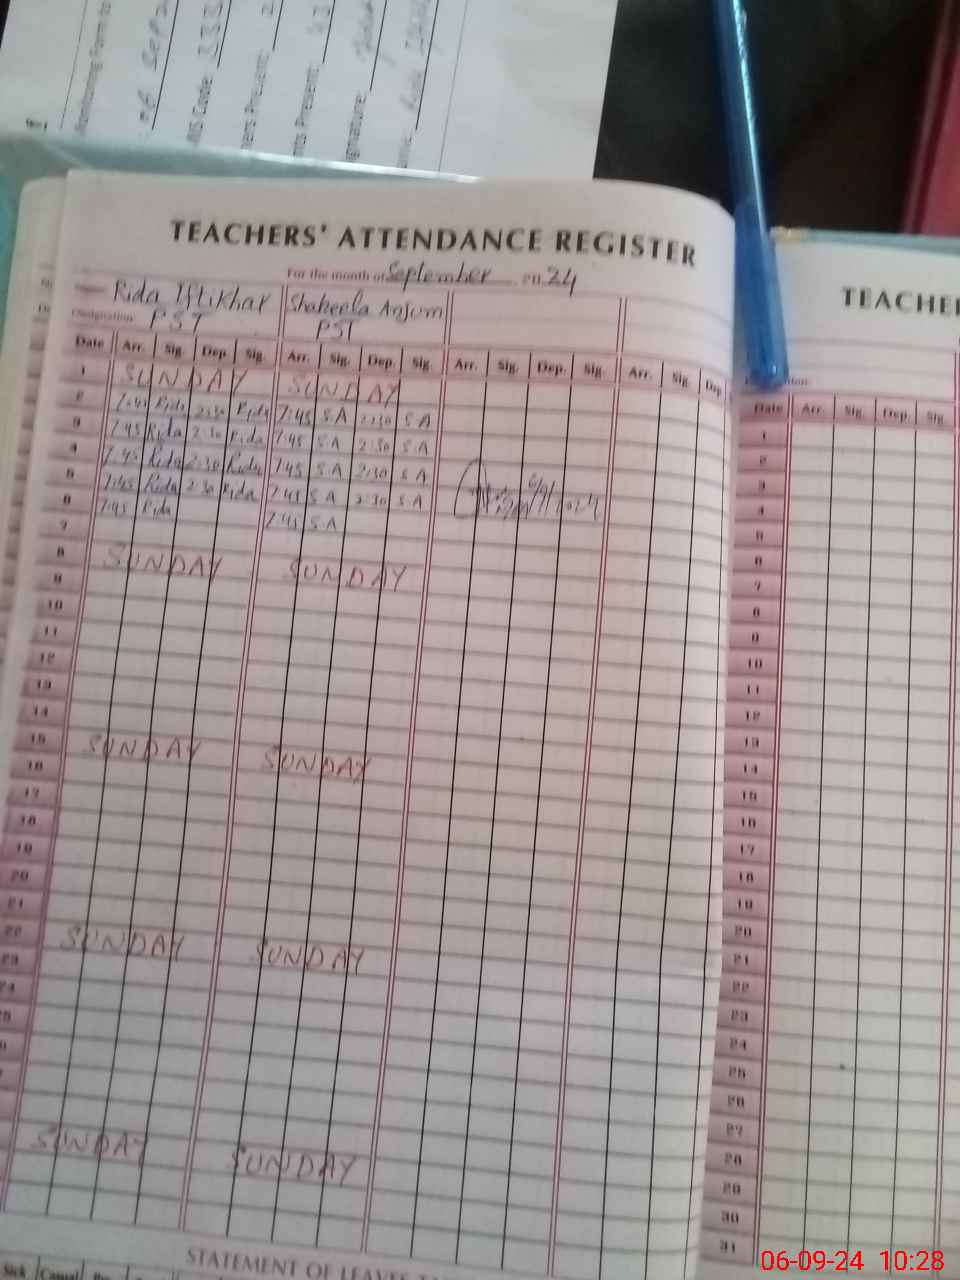 TEACHERS' ATTENDANCE REGISTER
For the month of September 2024
Name: Rida Iftikhar Shakeela Anjum
Designation: PST PST
Date Arr. Sig. Dep. Sig. Arr. Sig. Dep. Sig. Arr. Sig. Dep. Sig. Arr. Sig. Dep.
1 SUNDAY SUNDAY
2 7:45 Rida 2:30 Rida 7:45 S.A 2:30 S.A
3 7:45 Rida 2:30 Rida 7:45 S.A 2:30 S.A
4 7:45 Rida 2:30 Rida 7:45 S.A 2:30 S.A
5 7:45 Rida 2:30 Rida 7:45 S.A 2:30 S.A
6 7:45 Rida 7:45 S.A
6/9/2024
7
8 SUNDAY SUNDAY
9
10
11
12
13
14
15 SUNDAY SUNDAY
16
17
18
19
20
21
22 SUNDAY SUNDAY
23
24
SUNDAY SUNDAY
STATEMENT OF LEAVES
Sick Casual
TEACHE
Date Arr. Sig. Dep. Sig.
1
2
3
4
5
6
7
8
9
10
11
12
13
14
15
16
17
18
19
20
21
22
23
24
25
26
27
28
29
30
31
06-09-24 10:28